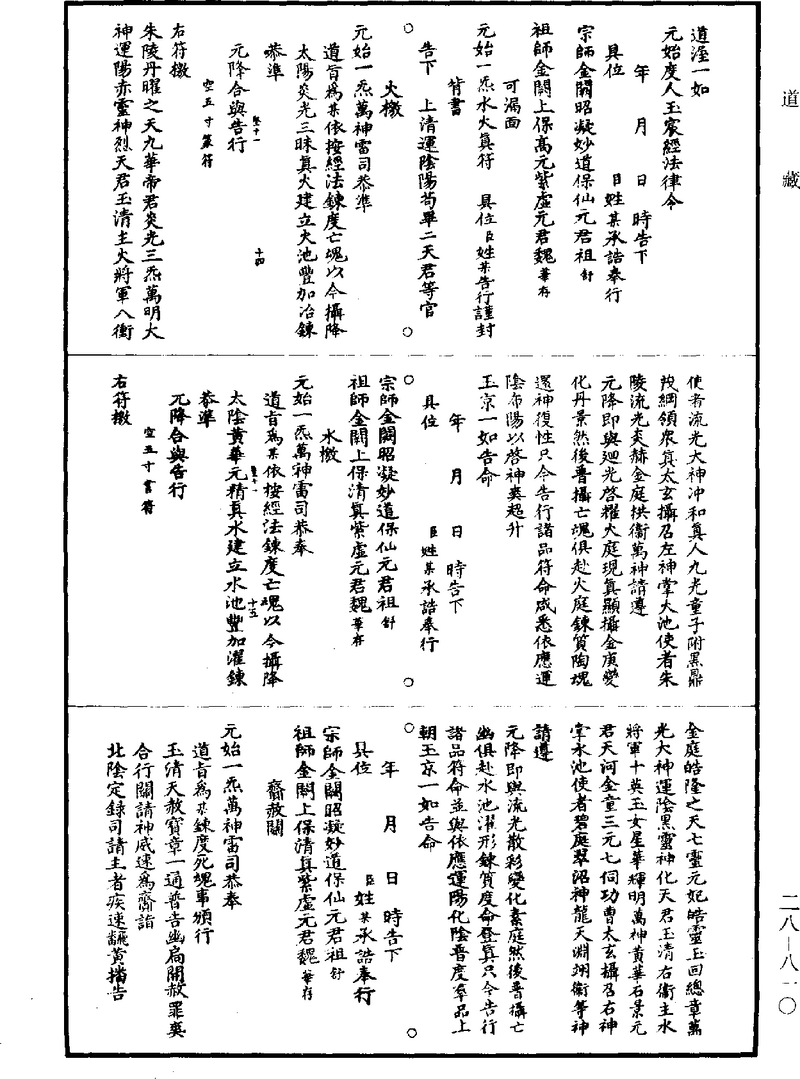 道藏
道溼一如
元始度人玉宸經法律令
年 月 日 時告下
具位 臣姓某承誥奉行
宗師金闕昭凝妙道保仙元君祖舒
祖師金闕上保高元紫虛元君魏華存
可漏面
元始一炁水火真符 具位臣姓某告行謹封
背書
告下 上清運陰陽苟畢二天君等官
火檄
元始一炁萬神雷司恭準
道旨為某依按經法鍊度亡魂以今攝降
太陽炎光三昧真火建立火池豐加冶鍊
恭準
元降合與告行
卷十一 十四
空五寸篆符
右符檄
朱陵丹曜之天九華帝君炎光三炁萬明大
神運陽赤靈神烈天君玉清主火將軍八衝
使者流光大神冲和真人九光童子附黑鼎
陵流光炎赫金庭拱衞萬神請遵
元降即與廻光啓耀火庭現真顯攝金庚變
化丹景然後普攝亡魂俱赴火庭鍊質陶魂
還神復性只今告行諸品符命咸悉依應運
陰布陽以啓神爽超升
玉京一如告命
年 月 日 時告下
具位 臣姓某承誥奉行
宗師金闕昭凝妙道保仙元君祖舒
祖師金闕上保清真紫虛元君魏華存
水檄
元始一炁萬神雷司恭奉
道旨為某依按經法鍊度亡魂以今攝降
卷十一 十五
太陰黃華元精真水建立水池豐加濯鍊
恭準
元降合與告行
空五寸書符
右符檄
金庭皓隆之天七靈元妃皓靈玉回總章萬
光大神運陰黑靈神化天君玉清右衞主水
將軍十英玉女星華輝明萬神黃華石景元
君天河金童三元七伺功曹太玄攝召右神
掌水池使者碧庭翠沼神龍天淵翊衞等神
請遵
元降即與流光散彩變化素庭然後普攝亡
幽俱赴水池濯形鍊質度命登真只今告行
諸品符命並與依應運陽化陰普度羣品上
朝玉京一如告命
年 月 日 時告下
具位 臣姓某承誥奉行
宗師金闕昭凝妙道保仙元君祖舒
祖師金闕上保清真紫虛元君魏華存
齎赦關
元始一炁萬神雷司恭奉
道旨為某鍊度死魂事頒行
玉清天赦寶章一通普告幽扃開赦罪爽
合行關請神威速為齎詣
北陰定錄司請主者疾速翻黃播告
二八—八一〇